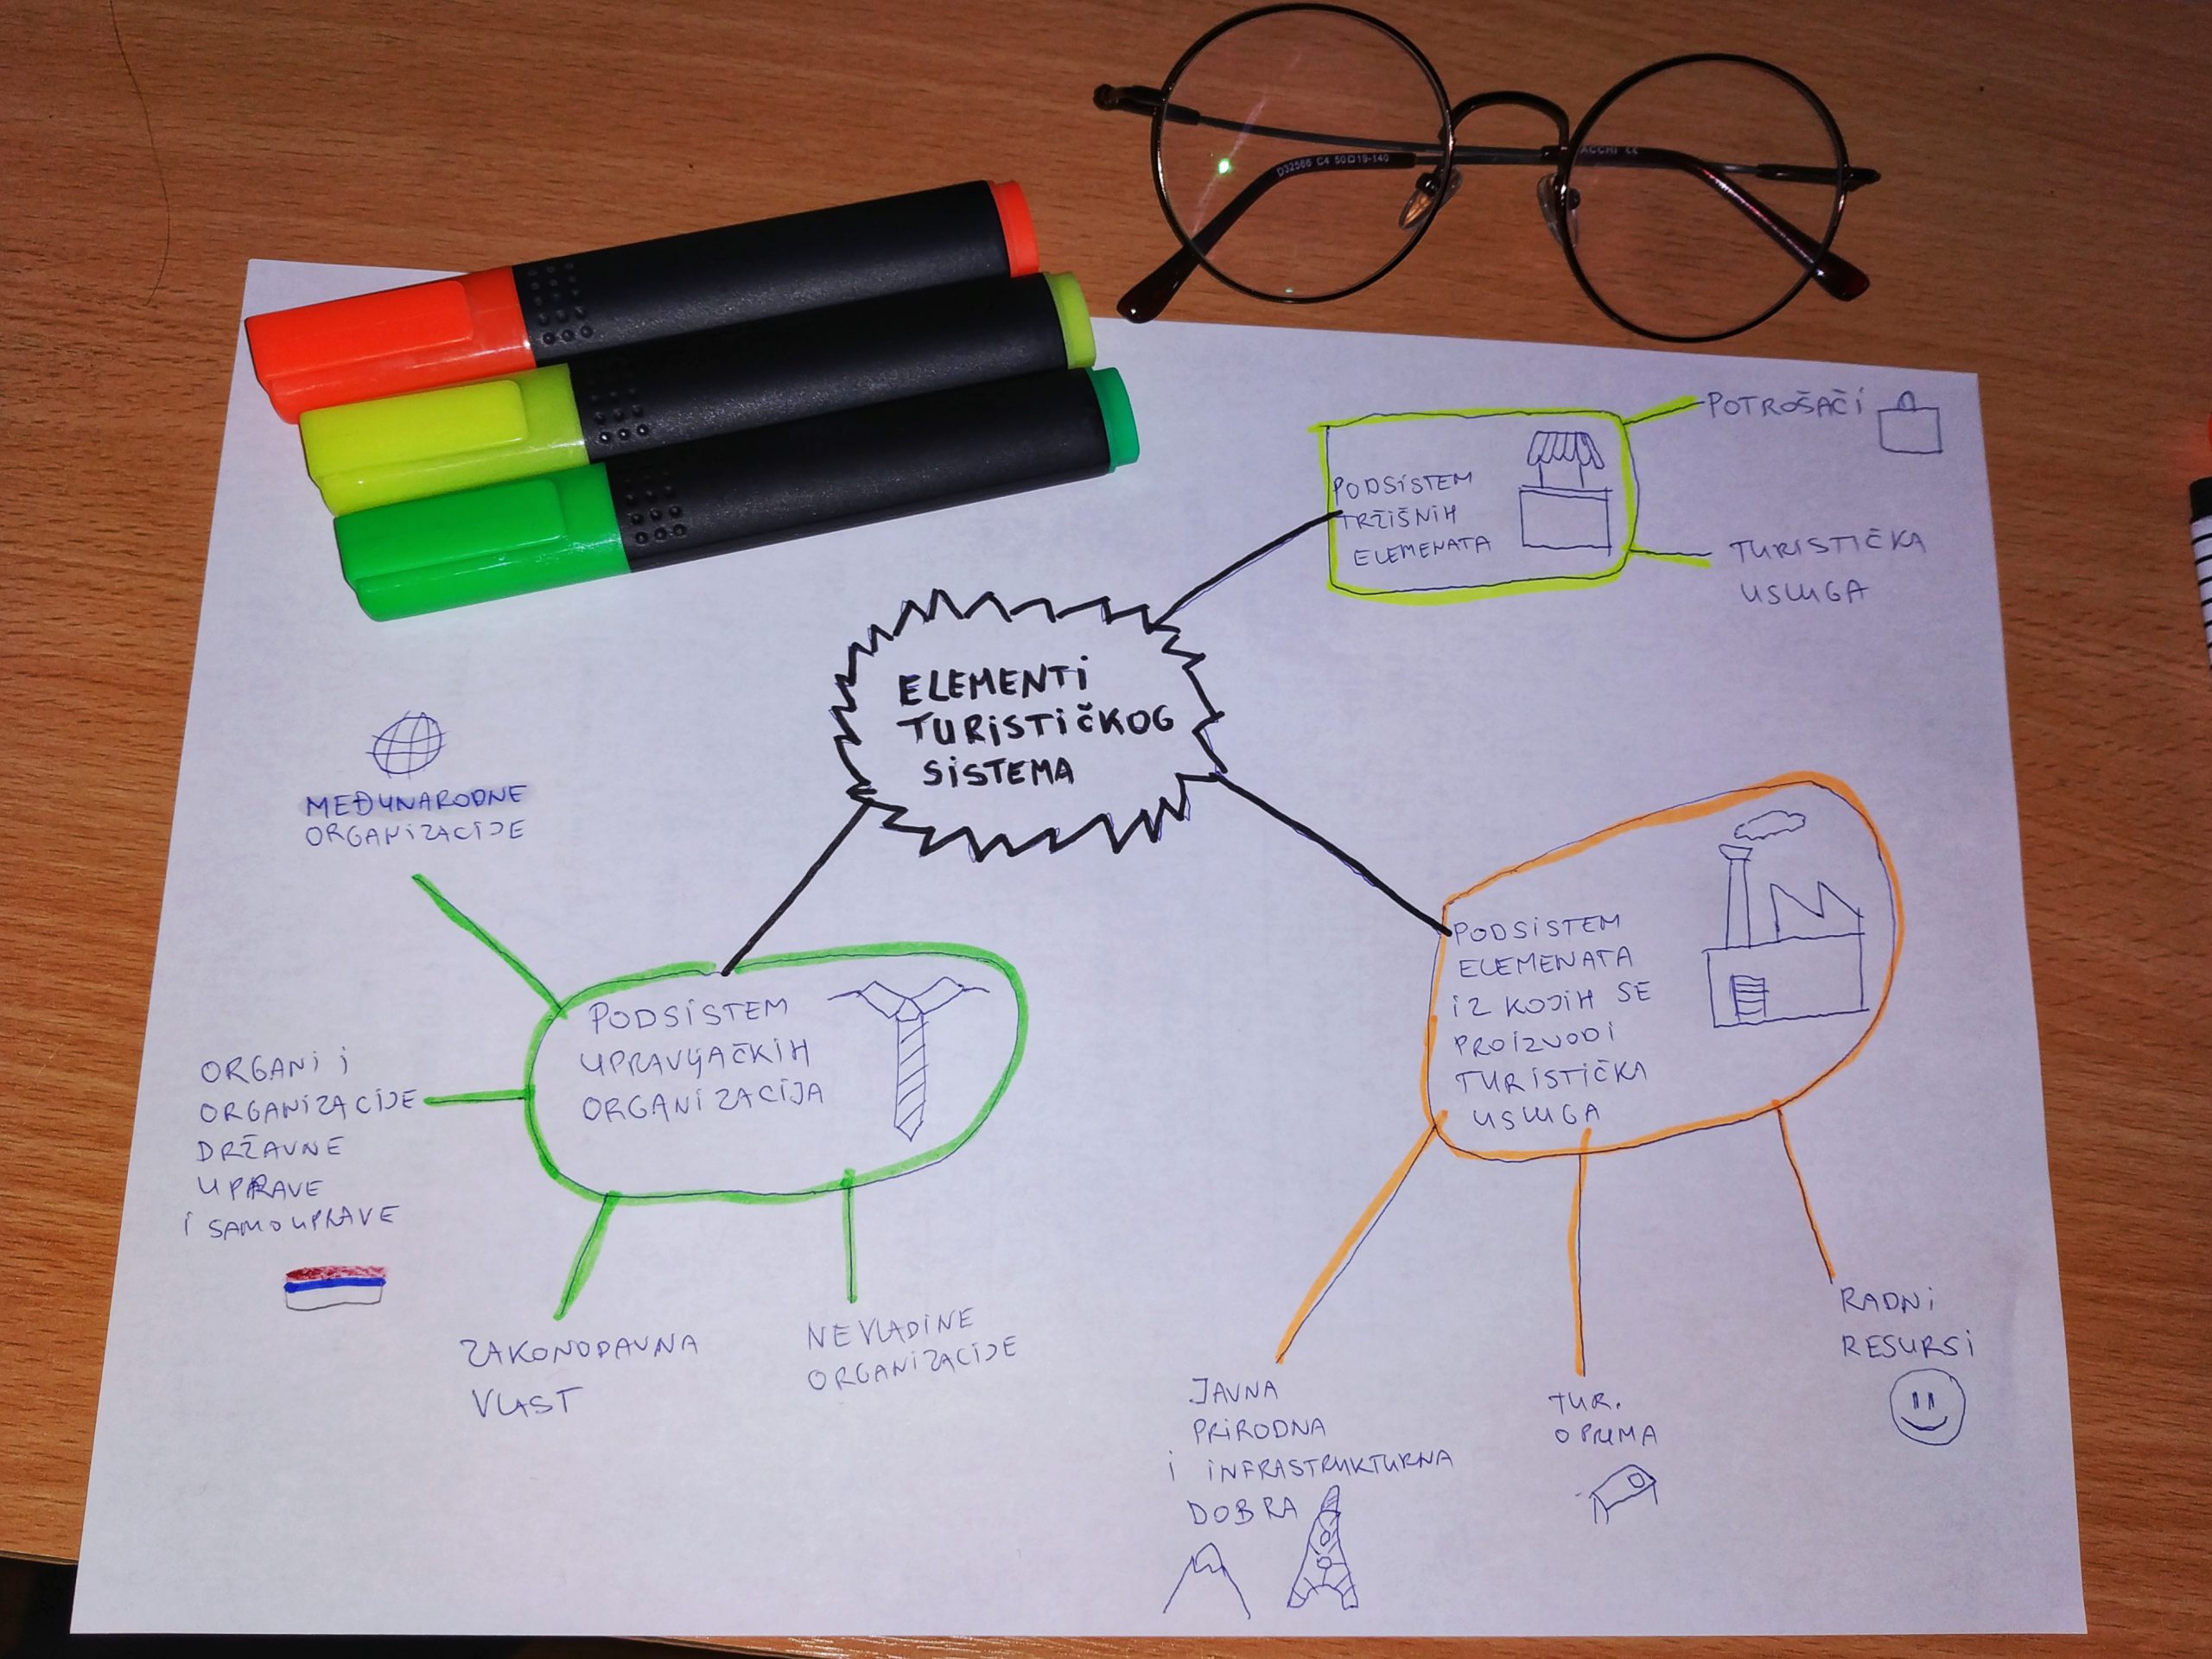 D32566 C4 50□19-140
POTROŠAČI
PODSISTEM
TRŽIŠNIH
ELEMENATA
TURISTIČKA
USLUGA
ELEMENTI
TURISTIČKOG
SISTEMA
MEĐUNARODNE
ORGANIZACIJE
PODSISTEM
UPRAVLJAČKIH
ORGANIZACIJA
ORGANI I
ORGANIZACIJE
DRŽAVNE
UPRAVE
I SAMOUPRAVE
ZAKONODAVNA
VLAST
NEVLADINE
ORGANIZACIJE
PODSISTEM
ELEMENATA
IZ KOJIH SE
PROIZVODI
TURISTIČKA
USLUGA
JAVNA
PRIRODNA
I INFRASTRUKTURNA
DOBRA
TUR.
OPREMA
RADNI
RESURSI